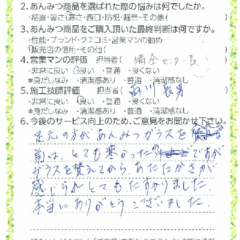 2.あんみつ商品を選ばれた際の悩みは何でしたか。
・結露・寒さ・暑さ・西日・防犯・騒音・その他(
3.あんみつ商品をご購入頂いた最終判断は何ですか。
・性能・ブランド・クチコミ・営業マンの勧め
・販売店の信札・その他(
4.営業マンの評価 担当者名(
・非常に良い ・良い ・普通 ・良くない
・身だしなみ ・清潔感有り ・普通 ・清潔感なし
5.施工技師評価 担当者名(
・非常に良い ・良い ・普通 ・良くない
・身だしなみ ・清潔感有り ・普通 ・清潔感なし
6.今後のサービス向上のため、ご意見をお聞かせ下さい。
前は、とても寒かったのですが
ガラスを替えてから、あたたかさが
感じられとてもたすかりました。
本当にありがとうございました。